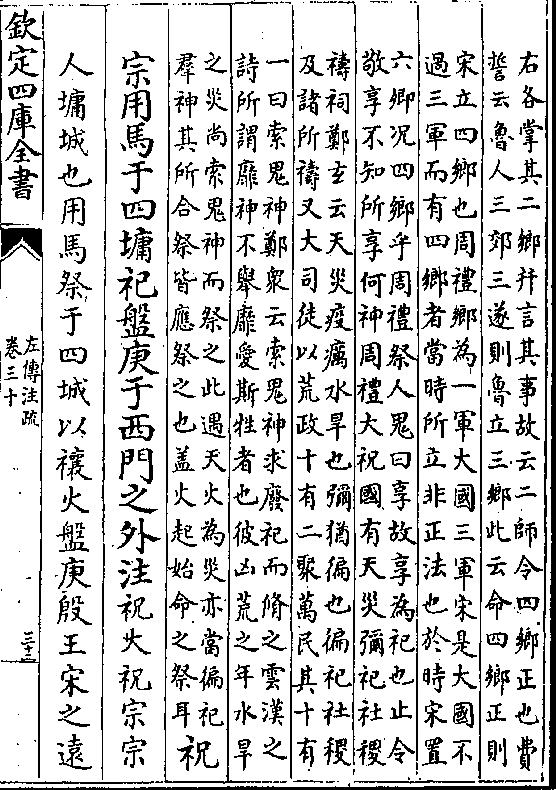 右各掌其二鄉幷言其事故云二師令四鄉正也費
誓云魯人三郊三遂則魯立三鄉此云命四鄉正則
宋立四鄉也周禮鄉為一軍大國三軍宋是大國不
過三軍而有四鄉者當時所立非正法也於時宋置
六卿况四鄉乎周禮祭人鬼曰享故享為祀也止令
敬享不知所享何神周禮大祝國有天災彌祀社稷
禱祠鄭玄云天災疫癘水旱也彌猶徧也徧祀社稷
及諸所禱又大司徒以荒政十有二聚萬民其十有
一曰索鬼神鄭衆云索鬼神求廢祀而脩之雲漢之
詩所謂靡神不舉靡愛斯牲者也彼凶荒之年水旱
之災尚索鬼神而祭之此遇天火為災亦當徧祀
羣神其所合祭皆應祭之也蓋火起始命之祭耳
祝
宗用馬于四墉祀盤庚于西門之外注祝大祝宗宗
人墉城也用馬祭于四城以禳火盤庚殷王宋之遠
欽定四庫全書
左傳注疏
卷三十
三十二